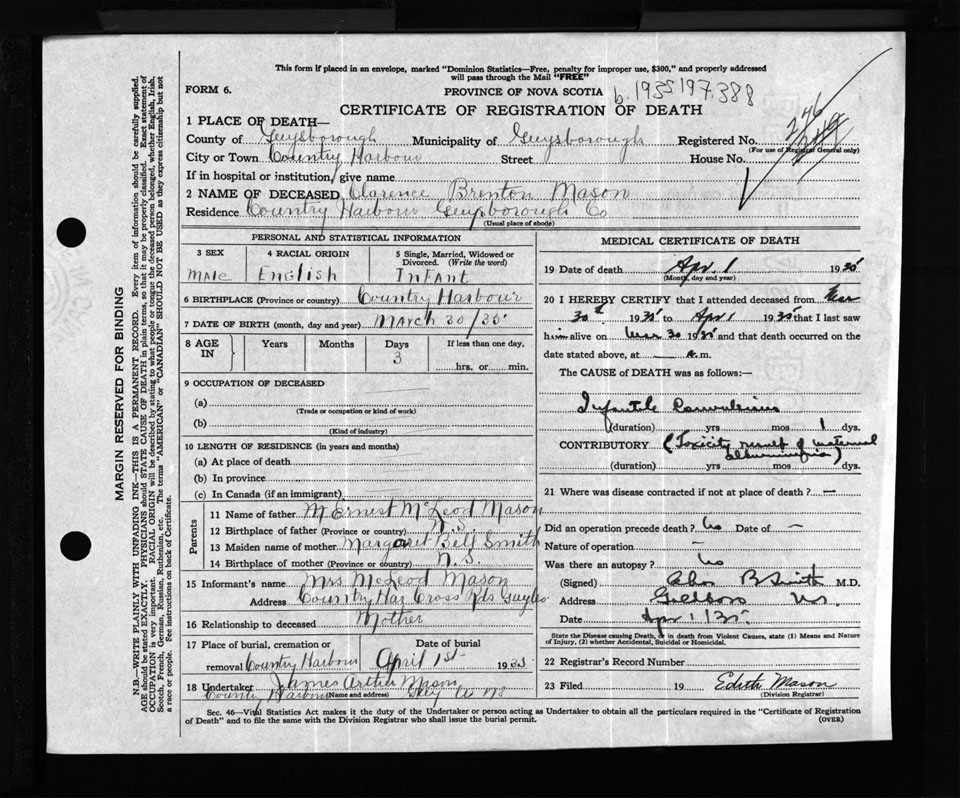 This form if placed in an envelope, marked "Dominion Statistics—Free, penalty for improper use, $300," and properly addressed
will pass through the Mail "FREE"
FORM 6.
PROVINCE OF NOVA SCOTIA
b. 1935 197.388
CERTIFICATE OF REGISTRATION OF DEATH
246
1 PLACE OF DEATH—
County of Guysborough Municipality of Guysborough Registered No.
(For use of Registrar General only)
City or Town Country Harbour Street House No.
If in hospital or institution, give name
2 NAME OF DECEASED Clarence Brenton Mason
Residence Country Harbour Guysborough Co
(Usual place of abode)
PERSONAL AND STATISTICAL INFORMATION
3 SEX 4 RACIAL ORIGIN 5 Single, Married, Widowed or
Divorced. (Write the word)
Male English Infant
6 BIRTHPLACE (Province or country) Country Harbour
7 DATE OF BIRTH (month, day and year) March 30/35
8 AGE IN Years Months Days If less than one day,
3 hrs. or min.
9 OCCUPATION OF DECEASED
(a)
(Trade or occupation or kind of work)
(b)
(Kind of industry)
10 LENGTH OF RESIDENCE (in years and months)
(a) At place of death
(b) In province
(c) In Canada (if an immigrant)
Parents
11 Name of father M Ernest McLeod Mason
12 Birthplace of father (Province or country) N.S.
13 Maiden name of mother Margaret Bell Smith
14 Birthplace of mother (Province or country) N.S.
15 Informant's name Mrs McLeod Mason
Address Country Har Cross Rds Guy Co
16 Relationship to deceased Mother
17 Place of burial, cremation or Date of burial
removal Country Harbour April 1st 1935
18 Undertaker James Arthur Mason
Country Harbour (Name and address) Guy Co NS
MEDICAL CERTIFICATE OF DEATH
19 Date of death Apr. 1 1935
(Month, day and year)
20 I HEREBY CERTIFY that I attended deceased from Mar
30th 1935 to Apr 1 1935 that I last saw
him alive on Mar 30 1935 and that death occurred on the
date stated above, at — a.m.
The CAUSE of DEATH was as follows:—
Infantile Convulsions
(duration) yrs mos 1 dys.
CONTRIBUTORY (Toxicity result of maternal
albuminuria)
(duration) yrs mos dys.
21 Where was disease contracted if not at place of death? —
Did an operation precede death? No Date of —
Nature of operation —
Was there an autopsy? No
(Signed) B Smith M.D.
Address Goldboro N.S.
Date Apr 1/35
State the Disease causing Death, or in death from Violent Causes, state (1) Means and Nature
of Injury, (2) whether Accidental, Suicidal or Homicidal.
22 Registrar's Record Number
23 Filed 19 Edith Mason
(Division Registrar)
Sec. 46—Vital Statistics Act makes it the duty of the Undertaker or person acting as Undertaker to obtain all the particulars required in the "Certificate of Registration
of Death" and to file the same with the Division Registrar who shall issue the burial permit.
(OVER)
MARGIN RESERVED FOR BINDING
N.B.—WRITE PLAINLY WITH UNFADING INK—THIS IS A PERMANENT RECORD. Every item of information should be carefully supplied.
AGE should be stated EXACTLY. PHYSICIANS should STATE CAUSE OF DEATH in plain terms, so that it may be properly classified. Exact statement of
OCCUPATION is very important. RACIAL ORIGIN will be described by stating to what people or tongue the deceased person belonged, whether English, Irish,
Scotch, French, German, Russian, Ruthenian, etc. The terms "AMERICAN" or "CANADIAN" SHOULD NOT BE USED as they express citizenship but not
a race or people. See instructions on back of Certificate.